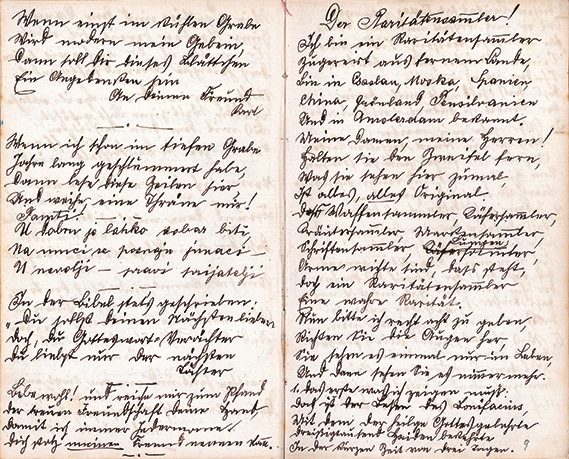 Wenn einst im kühlen Grabe
Wird modern mein Gebein,
Dann soll dir dieses Blättchen
Ein Angedenken sein
An deinen Freund
Karl
Wenn ich schon im tiefen Grabe
Jahre lang geschlummert habe,
Dann lese diese Zeilen hier
Und weihe, eine Thräne mir!
U dobru je lahko dobar biti,
Na muci se poznaju junaci —
U nevolji — pravi prijatelji
In der Bibel steht geschrieben:
"Du sollst deinen Nächsten lieben
Doch, du Gotteswort-Verächter
Du liebst nur der nächsten
Töchter
Lebe wohl! und reiche mir zum Pfand
der treuen Freundschaft deine Hand,
damit ich immer Jedermann
dich stolz meinen Freund nennen kann.
Der Raritätensammler!
Ich bin ein Raritätensammler
Zugereist aus fernem Lande,
bin in Breslau, Moskau, Spanien,
China, Grönland Pensilvanien
Und in Amsterdam bekannt.
Meine Damen, meine Herren!
Halten sie den Zweifel fern,
Was sie sehen hier zumal
Ist alles, alles Original
Waffensammler, Käfersammler,
Kräutersammler Markensammler,
Schriftensammler Lumpen
Arme Wichte sind, das steht,
doch ein Raritätensammler
Eine wahre Rarität.
Nun bitte ich recht acht zu geben,
Richten Sie die Augen her,
Sie sehn es einmal nur im Leben,
Und dann sehen Sie es nimmer mehr.
1. das erste was ich zeigen muß:
Das ist der Besen des Bonifacius,
Mit dem der heilge Gottesgelehrte
Dreißigtausend Heiden bekehrte
In der kurzen Zeit von drei Tagen.
9